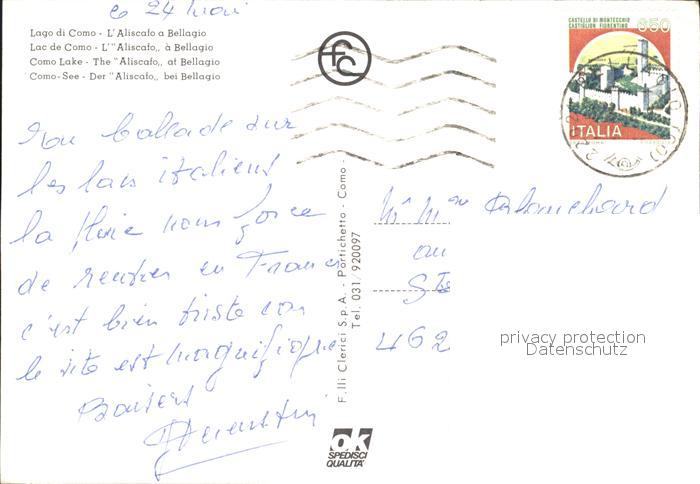 24
Lago di Como - L'Aliscafo a Bellagio
Lac de Como - L'"Aliscafo,, à Bellagio
Como Lake - The "Aliscafo,, at Bellagio
Como-See - Der "Aliscafo,, bei Bellagio
ballade sur
les lacs italiens
la pluie nous force
de rentrer en France
c'est bien triste car
le site est magnifique
Baisers
F.lli Clerici S.p.A. - Portichetto - Como - Tel. 031/920097
ok
SPEDISCI
QUALITÀ
CASTELLO DI MONTECCHIO
CASTIGLION FIORENTINO
650
ITALIA
Blanchard
462
privacy protection
Datenschutz